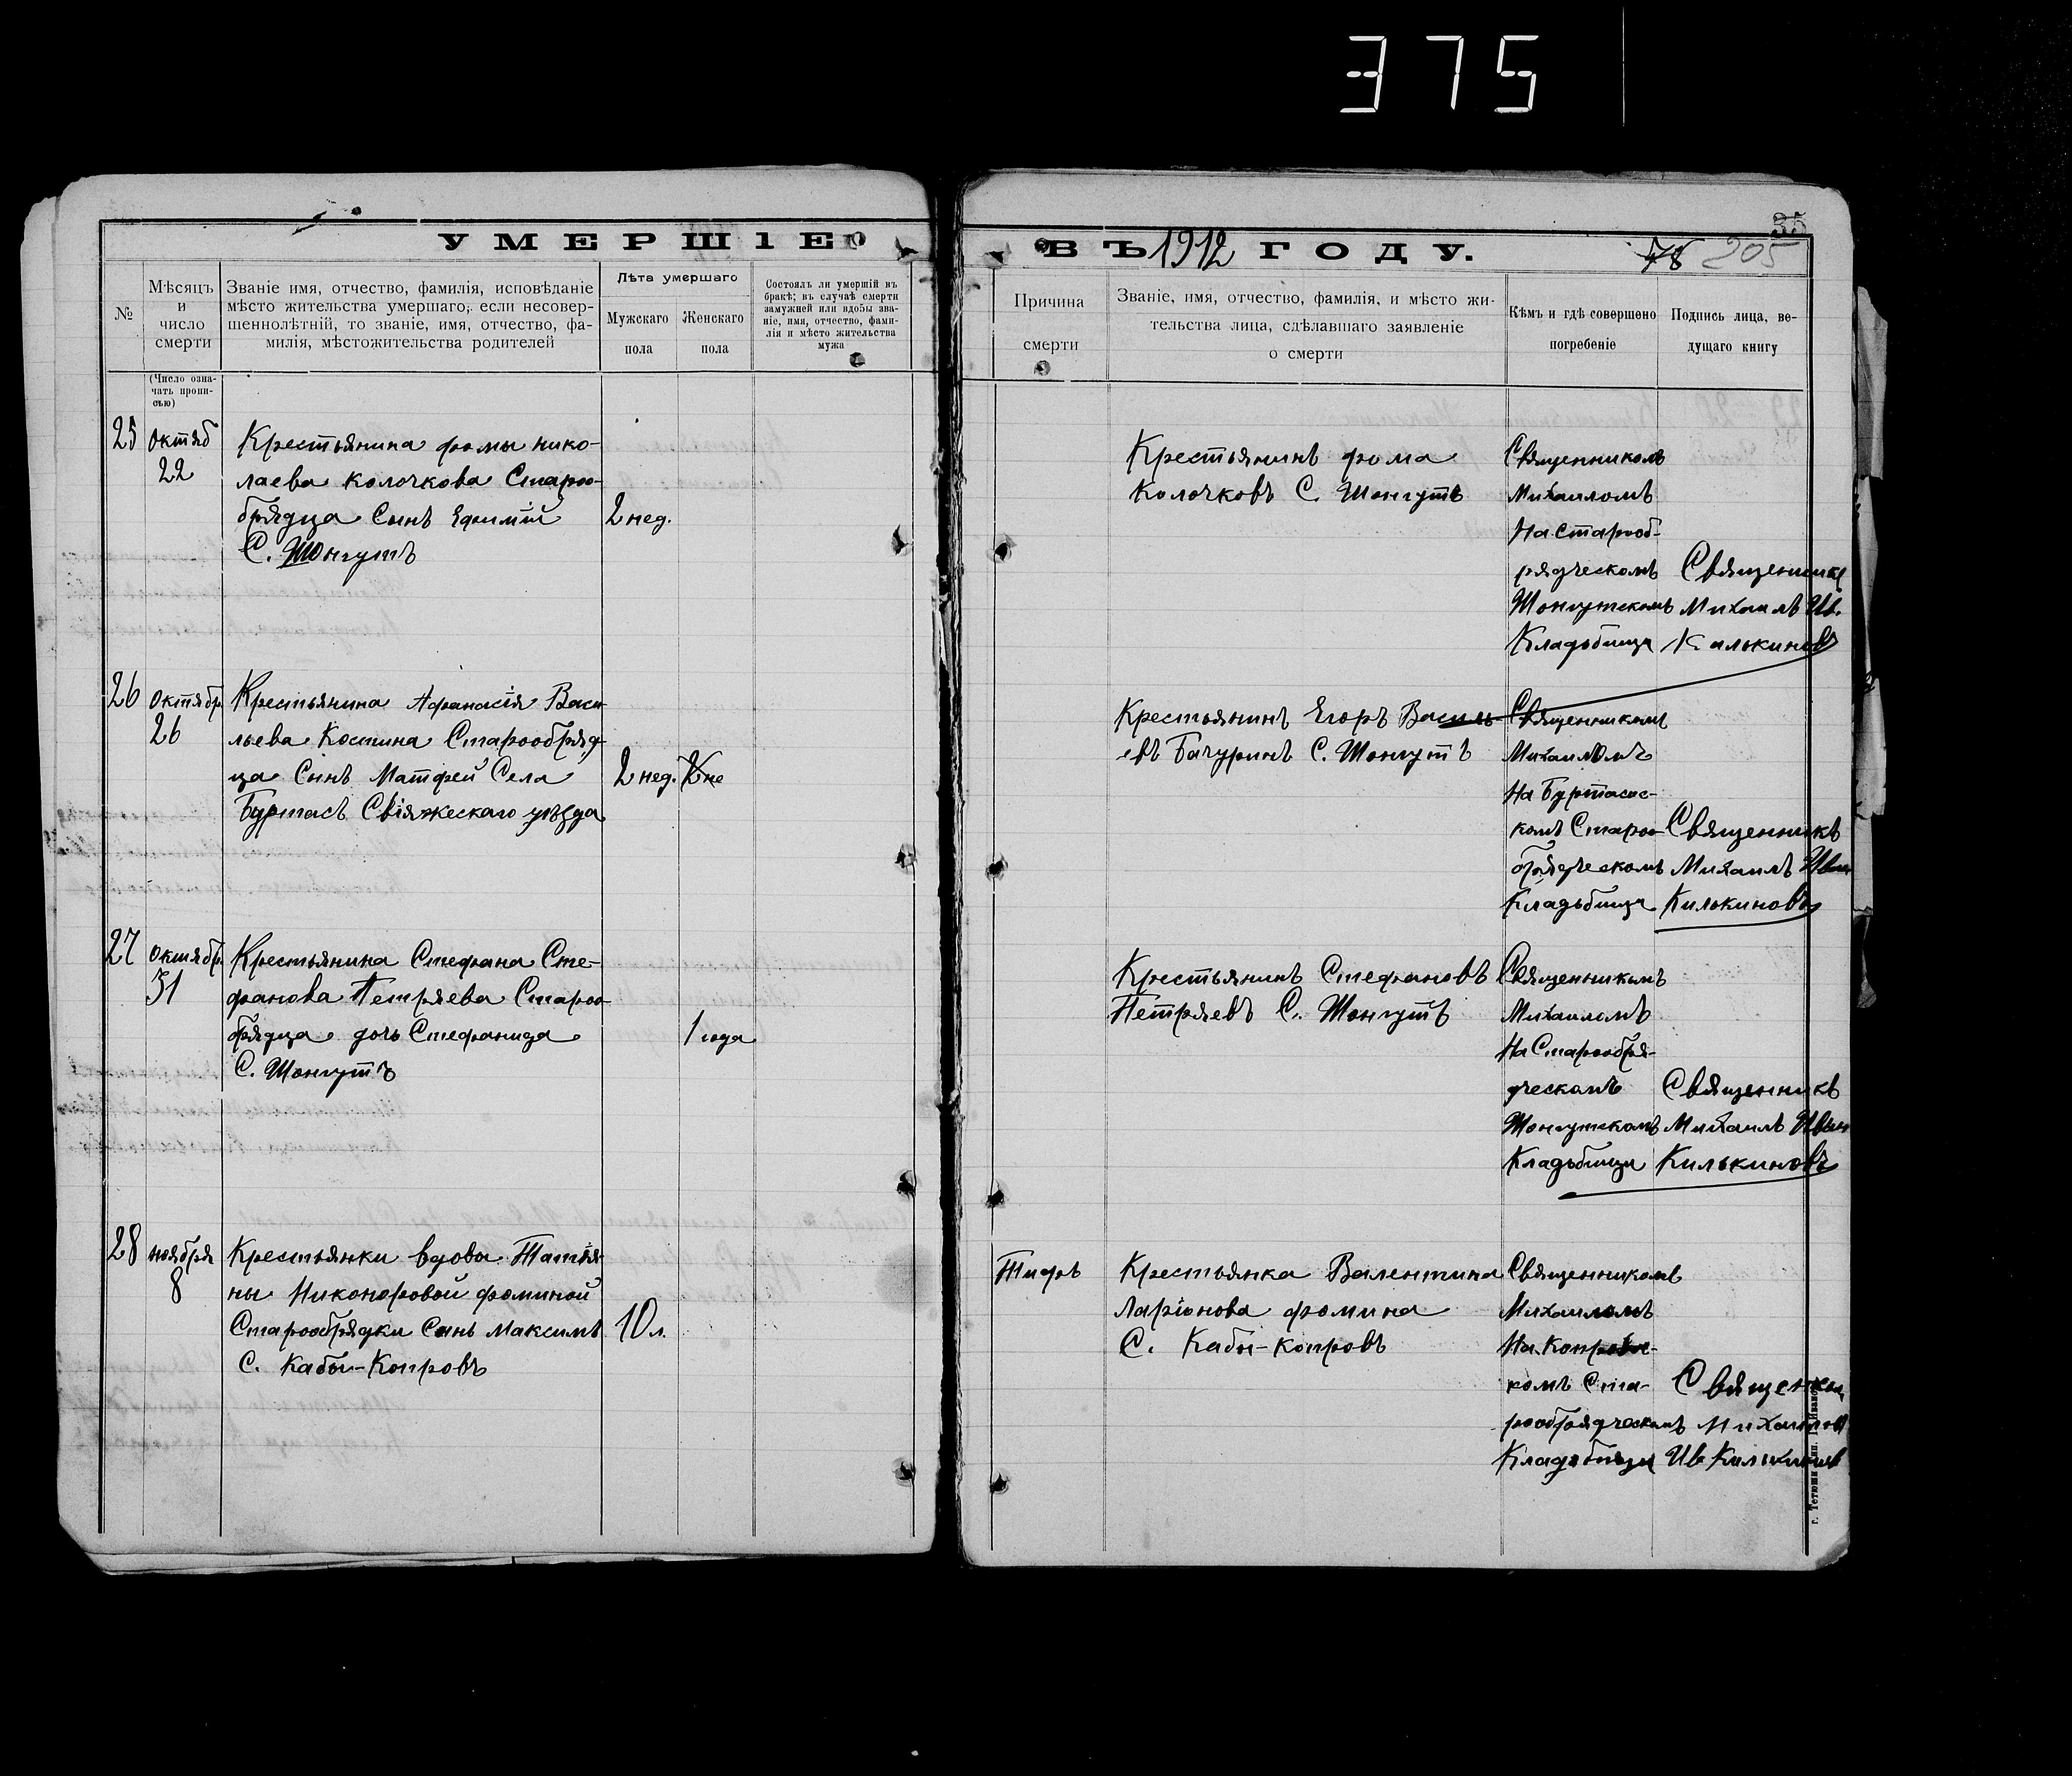 375
УМЕРШІЕ
ВЪ 1912 ГОДУ.
35
78 205
№
Мѣсяцъ
и
число
смерти
(Число озна-
чать пропи-
сью)
Званіе имя, отчество, фамилія, исповѣданіе
мѣсто жительства умершаго, если несовер-
шеннолѣтній, то званіе, имя, отчество, фа-
милія, мѣстожительства родителей
Лѣта умершаго
Мужскаго
пола
Женскаго
пола
Состоялъ ли умершій въ
бракѣ; въ случаѣ смерти
замужней или вдовы зва-
ніе, имя, отчество, фами-
лія и мѣсто жительства
мужа
Причина
смерти
Званіе, имя, отчество, фамилія, и мѣсто жи-
тельства лица, сдѣлавшаго заявленіе
о смерти
Кѣмъ и гдѣ совершено
погребеніе
Подпись лица, ве-
дущаго книгу
25
Октяб
22
Крестьянина фомы нико-
лаева Колочкова Староо-
брядца Сынъ Ефимій
С. Шонгутъ
2 нед.
Крестьянинъ фома
Колочковъ С. Шонгутъ
Священникомъ
Михаиломъ
На Старооб-
рядческомъ
Шонгутскомъ
Кладьбище
Священникъ
Михаилъ Ив.
Килькиновъ
26
Октябр
26
Крестьянина Афанасія Васи-
льева Костина Старообряд-
ца Сынъ Матфей Села
Буртасъ Свіяжескаго уѣзда
2 нед.
2 не
Крестьянинъ Егоръ Василь-
евъ Бачуринъ С. Шонгутъ
Священникомъ
Михаиломъ
На Буртасс-
комъ Староо-
брядческомъ
Кладьбище
Священникъ
Михаилъ Иван
Килькиновъ
27
Октябр.
31
Крестьянина Стефана Сте-
фанова Петряева Староо-
брядца дочь Стефанида
С. Шонгутъ
1 года
Крестьянинъ Стефановъ
Петряевъ С. Шонгутъ
Священникомъ
Михаиломъ
На Старообря-
дческомъ
Шонгутскомъ
Кладьбищи
Священникъ
Михаилъ Иван
Килькиновъ
28
ноября
8
Крестьянки вдовы Татія-
ны Никоноровой фоминой
Старообрядки Сынъ Максимъ
С. Кабы-Копровъ
10 л.
Тифъ
Крестьянка Валентина
Ларіонова фомина
С. Кабы-Копровъ
Священникомъ
Михаиломъ
комъ Ста-
рообрядческомъ
Кладьбищи
Михаилов
Ив Килькинов
г. Тетюши тип. Г. Иванов